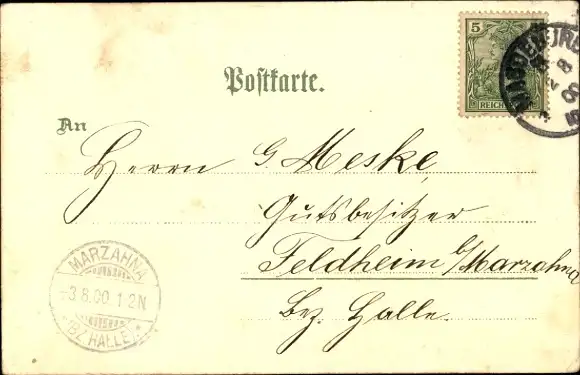 5
REICH
Postkarte.
An
Herrn G Meske,
Gutsbesitzer
Feldheim b/Marzahna
Bez. Halle.
MARZAHNA
-3.8.00 1-2N
*(BZ HALLE)*